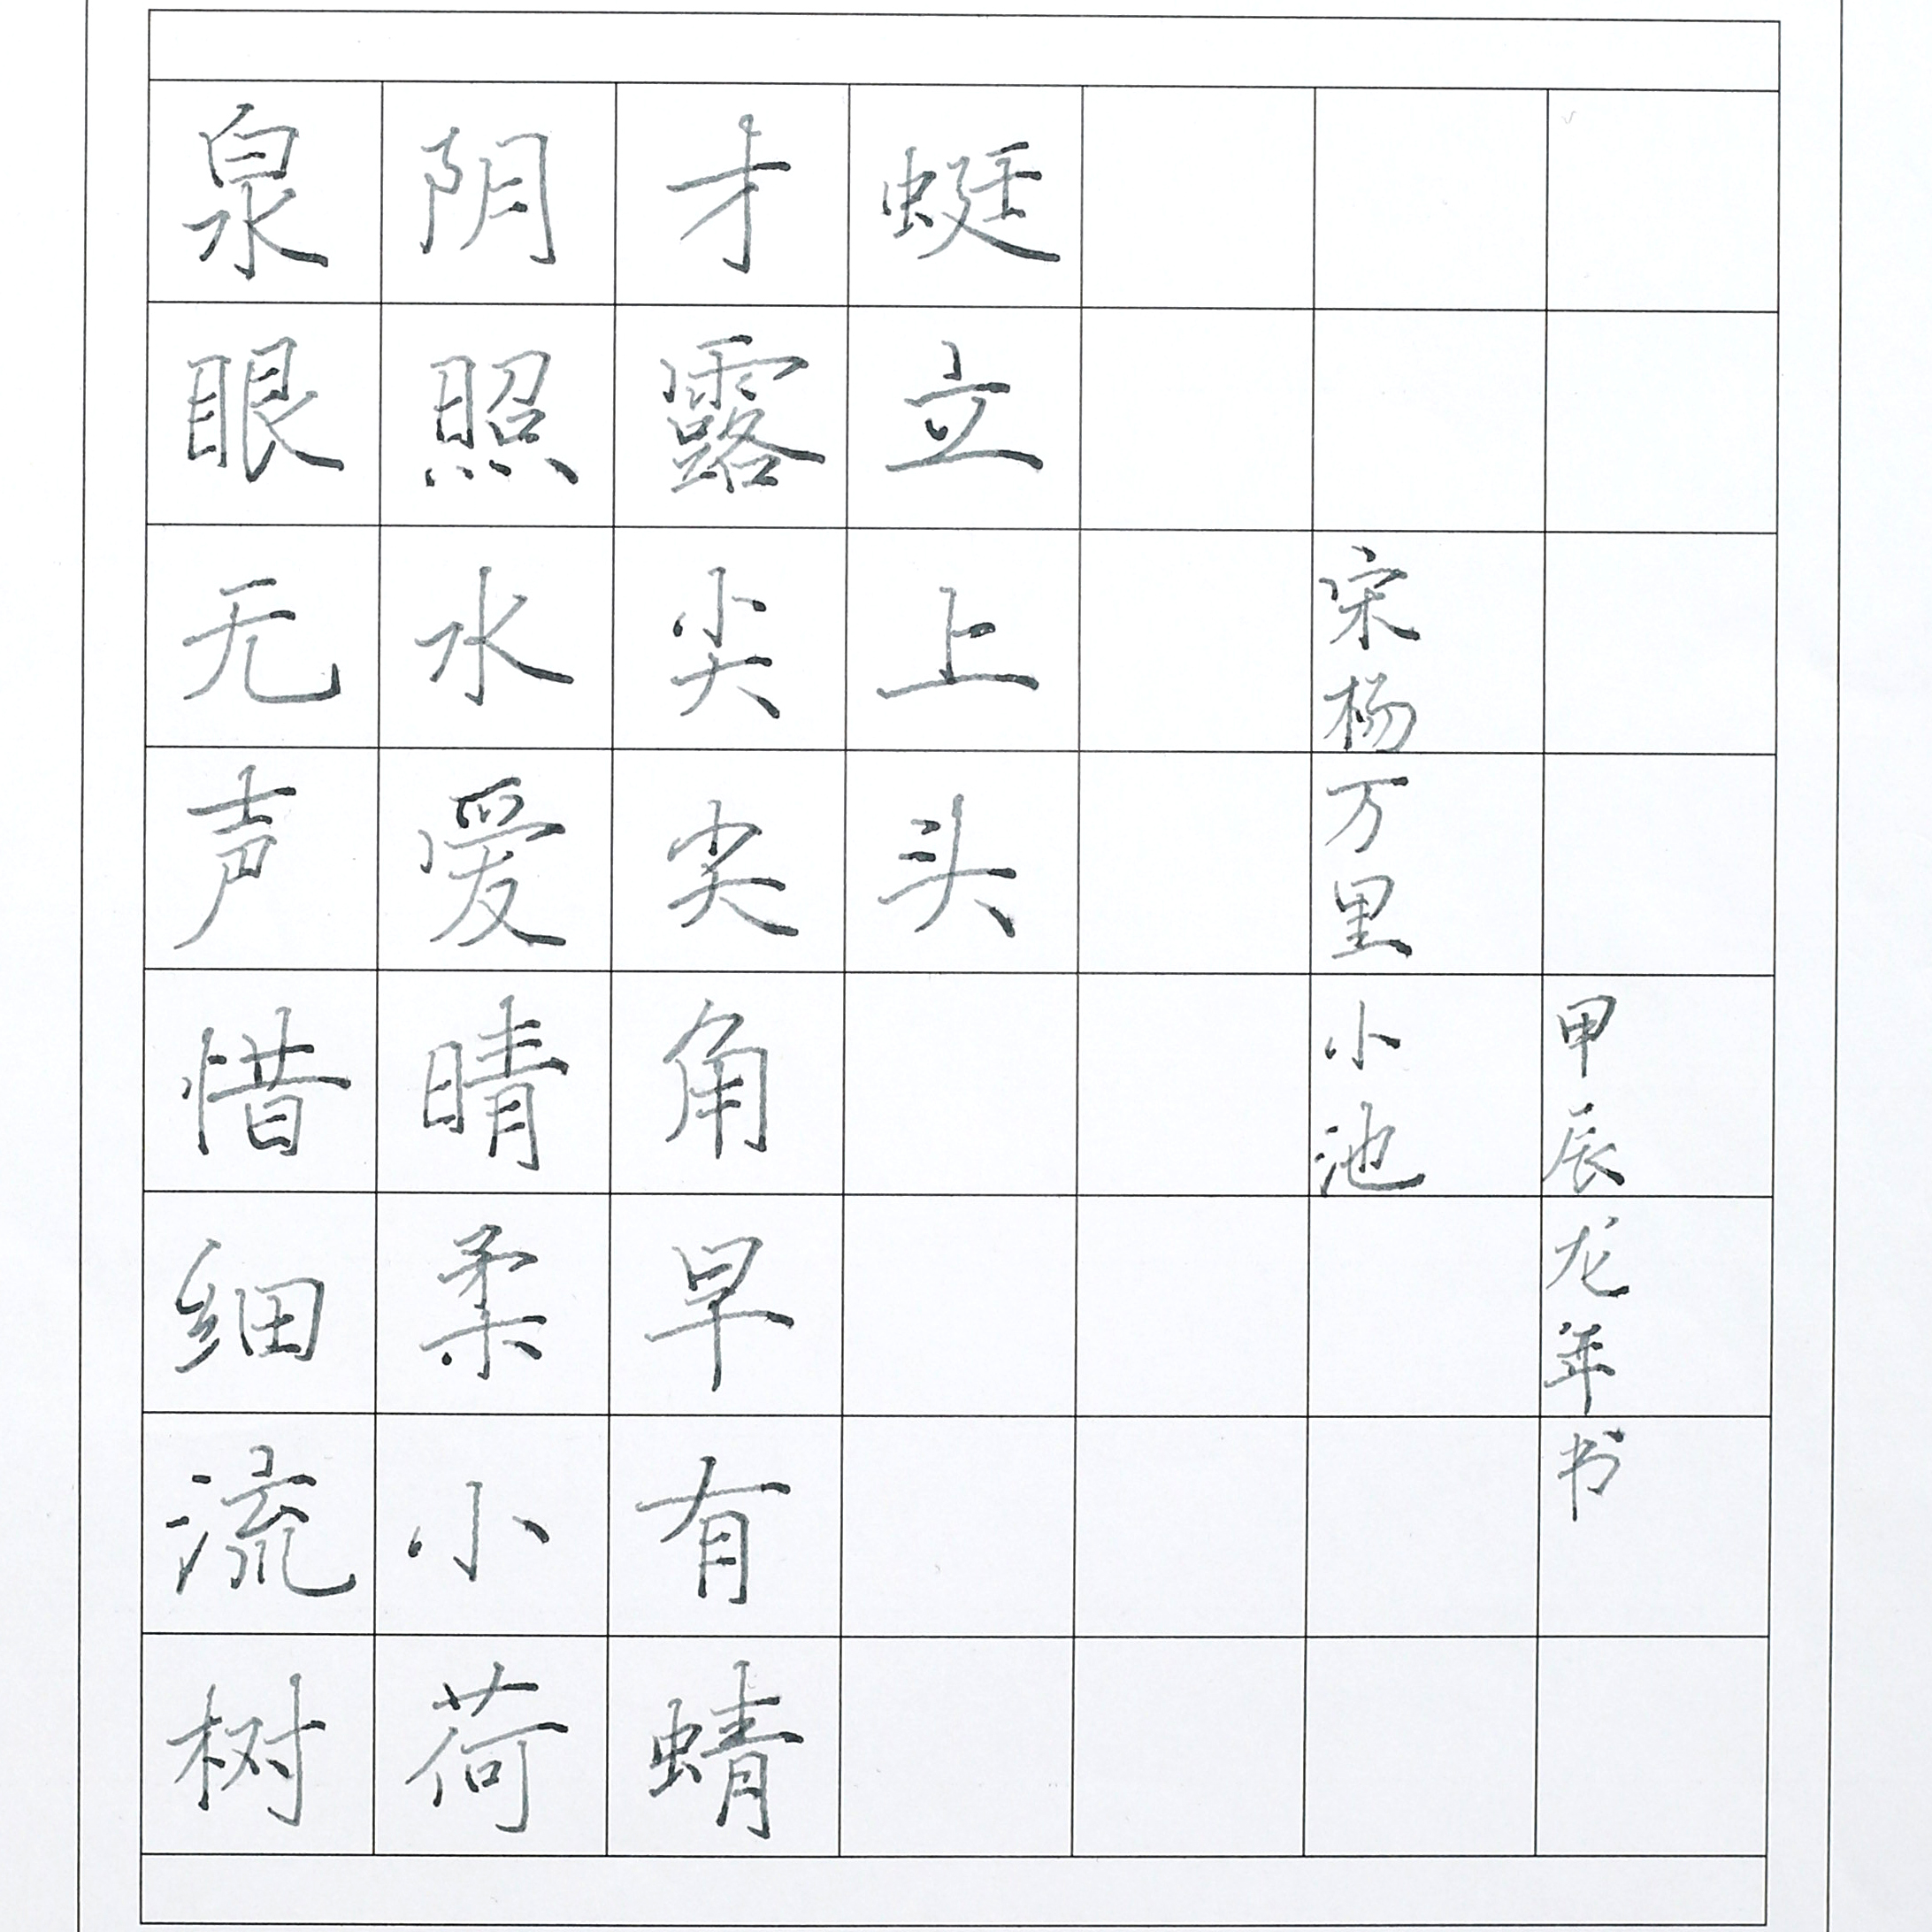 泉眼无声惜细流树
阴照水爱晴柔小荷
才露尖尖角早有蜻
蜓立上头
宋杨万里小池
甲辰龙年书